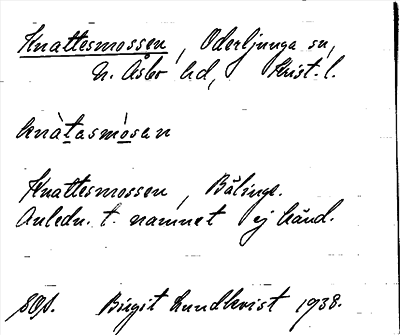 Knattesmossen, Oderljunga sn,
N. Åsbo hd, Krist. l.
knàtasmòsan
Knattesmossen, Bälinge.
Anledn. t. namnet ej känd.
Birgit Lundkvist 1938.